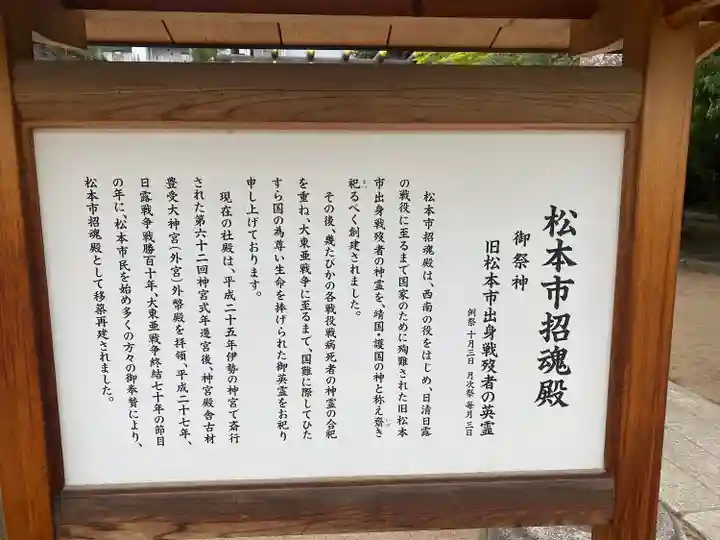 松本市招魂殿
御祭神
旧松本市出身戦歿者の英霊
例祭 十月三日 月次祭 毎月三日
松本市招魂殿は、西南の役をはじめ、日清日露
の戦役に至るまで国家のために殉難された旧松本
市出身戦歿者の神霊を、靖国・護国の神と称え齋き
祀るべく創建されました。
その後、幾たびかの各戦役戦病死者の神霊の合祀
を重ね、大東亜戦争に至るまで、国難に際してひた
すら国の為尊い生命を捧げられた御英霊をお祀り
申し上げております。
現在の社殿は、平成二十五年伊勢の神宮で斎行
された第六十二回神宮式年遷宮後、神宮殿舎古材
豊受大神宮（外宮）外幣殿を拝領、平成二十七年、
日露戦争戦勝百十年、大東亜戦争終結七十年の節目
の年に、松本市民を始め多くの方々の御奉賛により、
松本市招魂殿として移築再建されました。